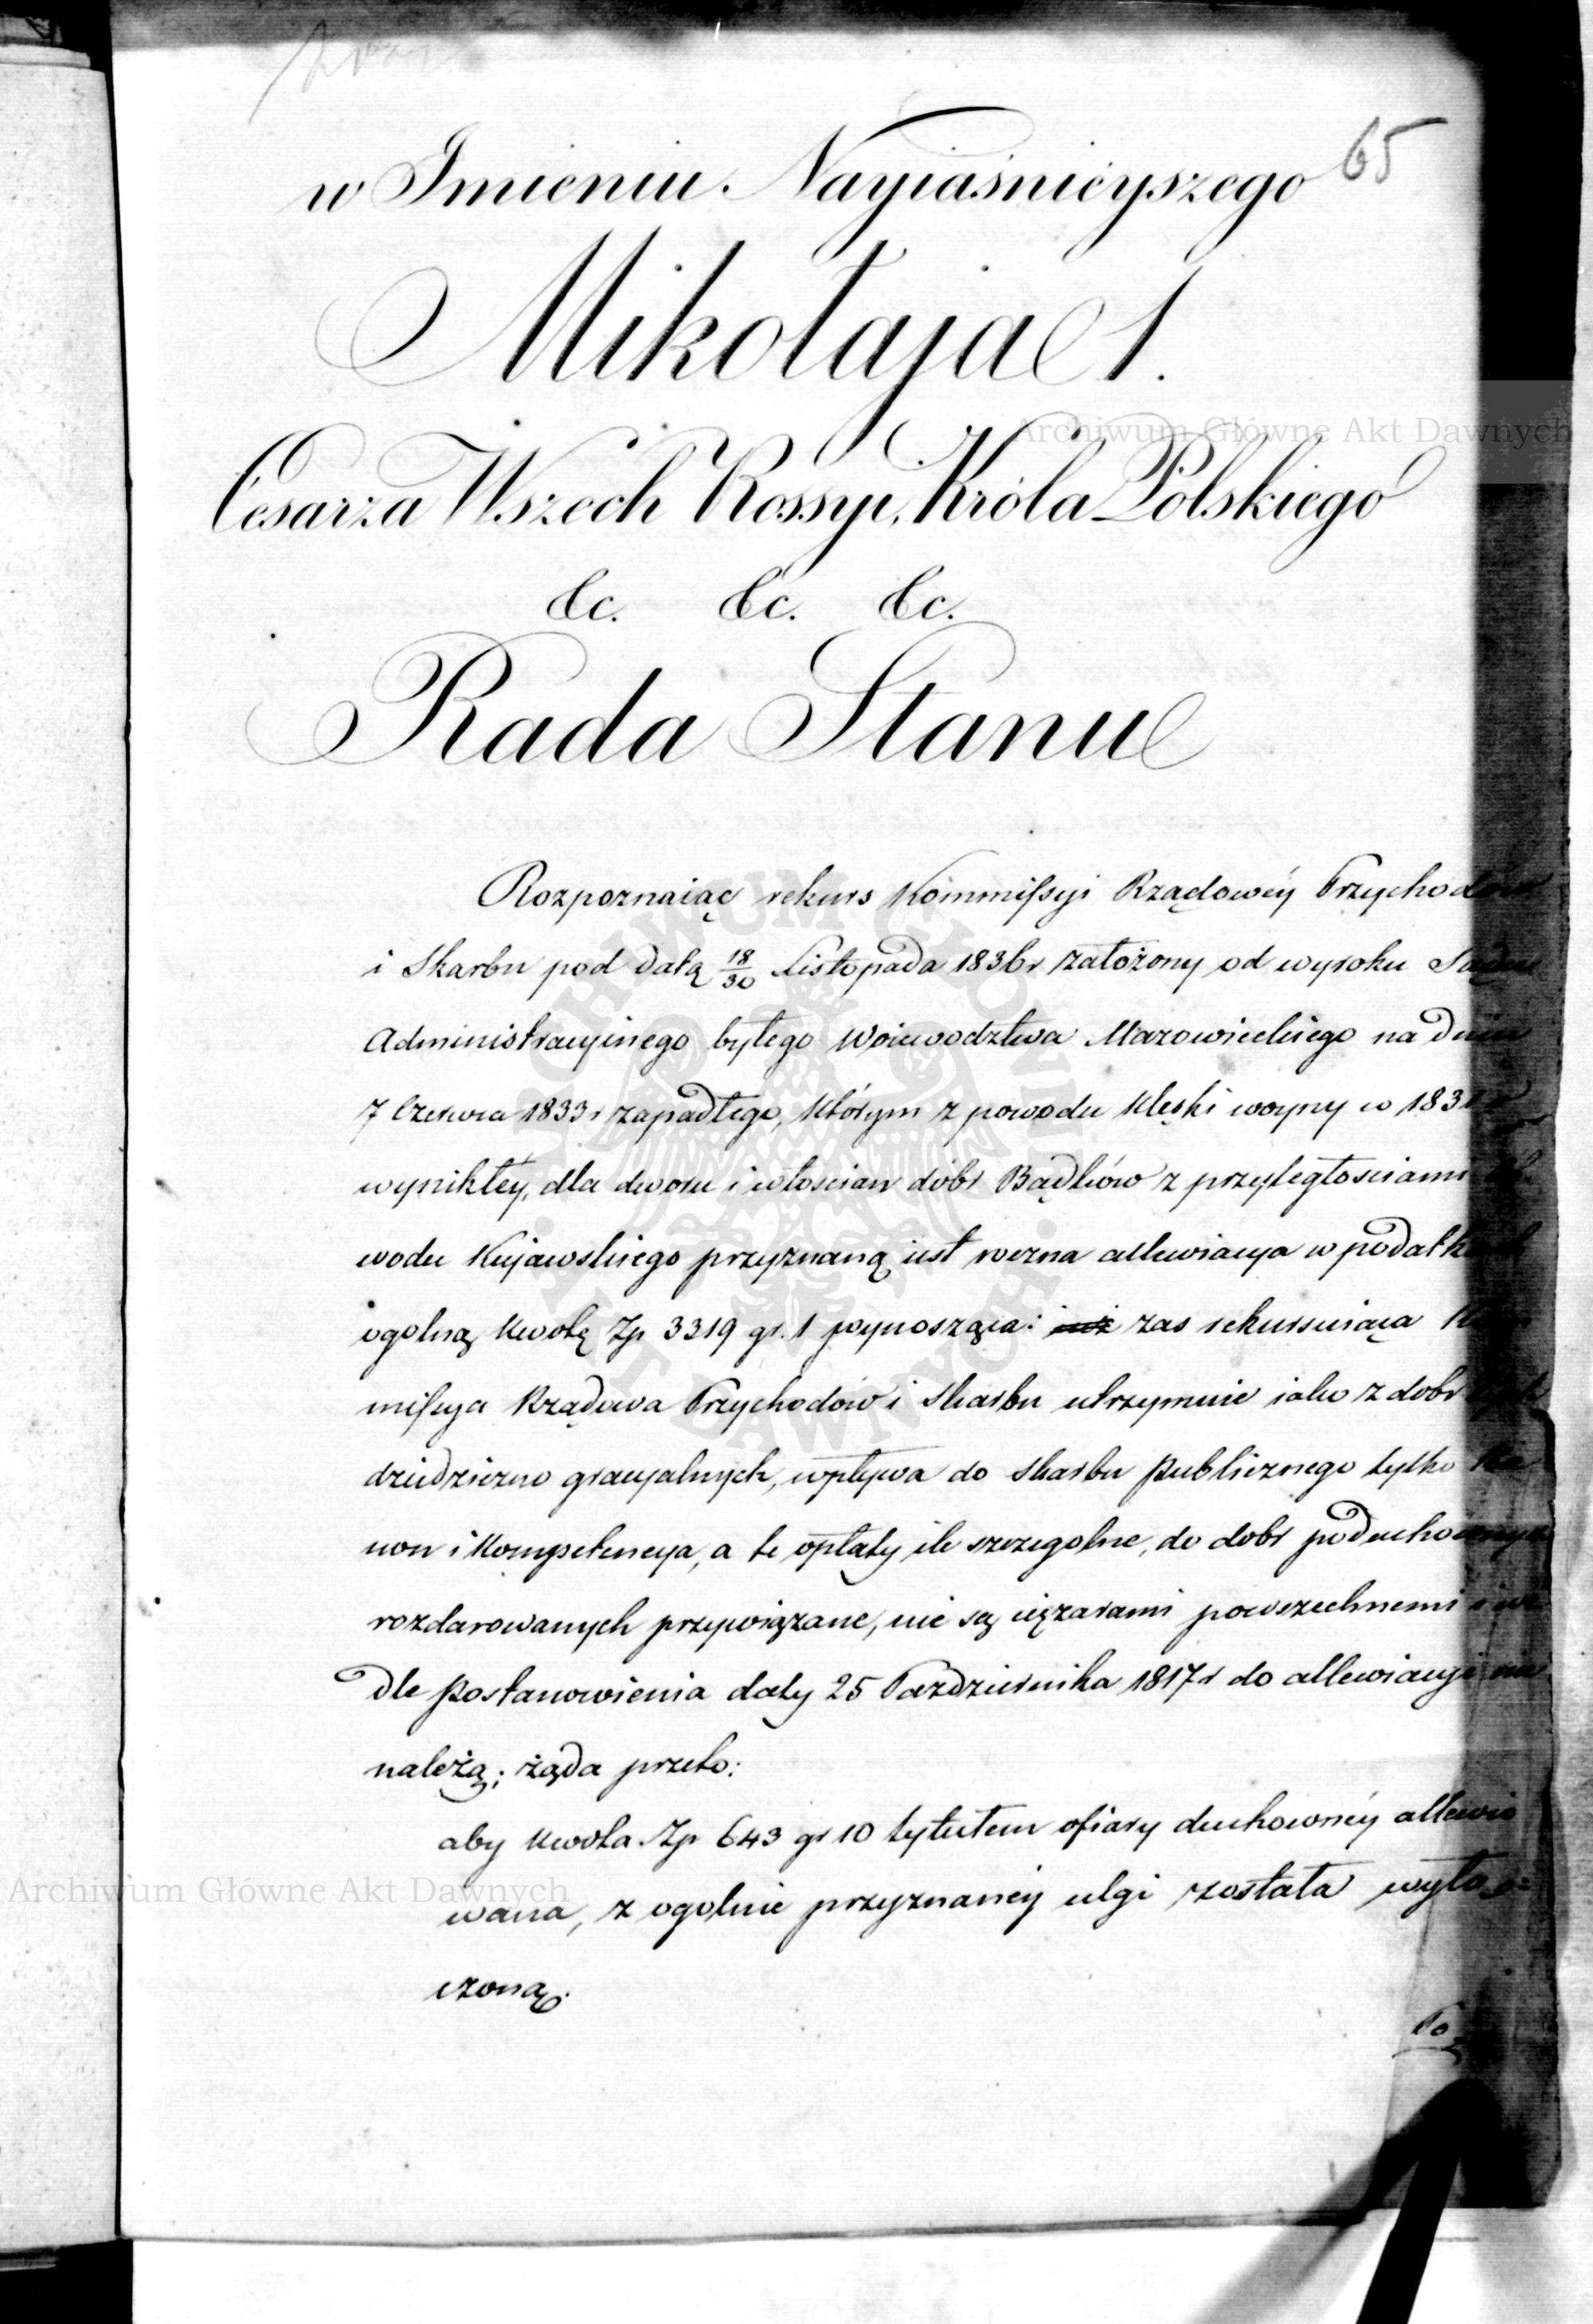 65
w Imieniu Nayiaśnieyszego
Mikołaja 1.
Cesarza Wszech Rossyi, Króla Polskiego
&c. &c. &c.
Rada Stanu
Rozpoznaiąc rekurs Kommissyi Rządowéy Przychodów
i Skarbu pod datą 18/30 Listopada 1836 r założony od wyroku Sądu
Administracyinego byłego Woiewodztwa Mazowieckiego na dniu
7 Czerwca 1833 r zapadłego, którym z powodu klęski woyny w 1831
wynikłéy, dla dworu i włościan dóbr Bądków z przyległościami
wodu Kujawskiego przyznaną iest roczna allewiacya w podatkach
ogolną kwotę Zp 3319 gr. 1 wynosząca: zas rekursuiąca Kom
missya Rządowa Przychodów i Skarbu utrzymuie iako z dobr
dziedziczno gracyalnych, wpływa do Skarbu Publicznego tylko Ka
non i Kompetencya, a te opłaty ile szczegolne, do dobr poduchownych
rozdarowanych przywiązane, nie są ciężarami powszechnemi i we
dle Postanowienia daty 25 Października 1817 r do allewiacyi nie
należą; żąda przeto:
aby kwota Zp 643 gr 10 tytułem ofiary duchownéy allewio
wana, z ogolnie przyznanéy ulgi została wyłą=
czoną.
Po
Archiwum Główne Akt Dawnych
Archiwum Główne Akt Dawnych